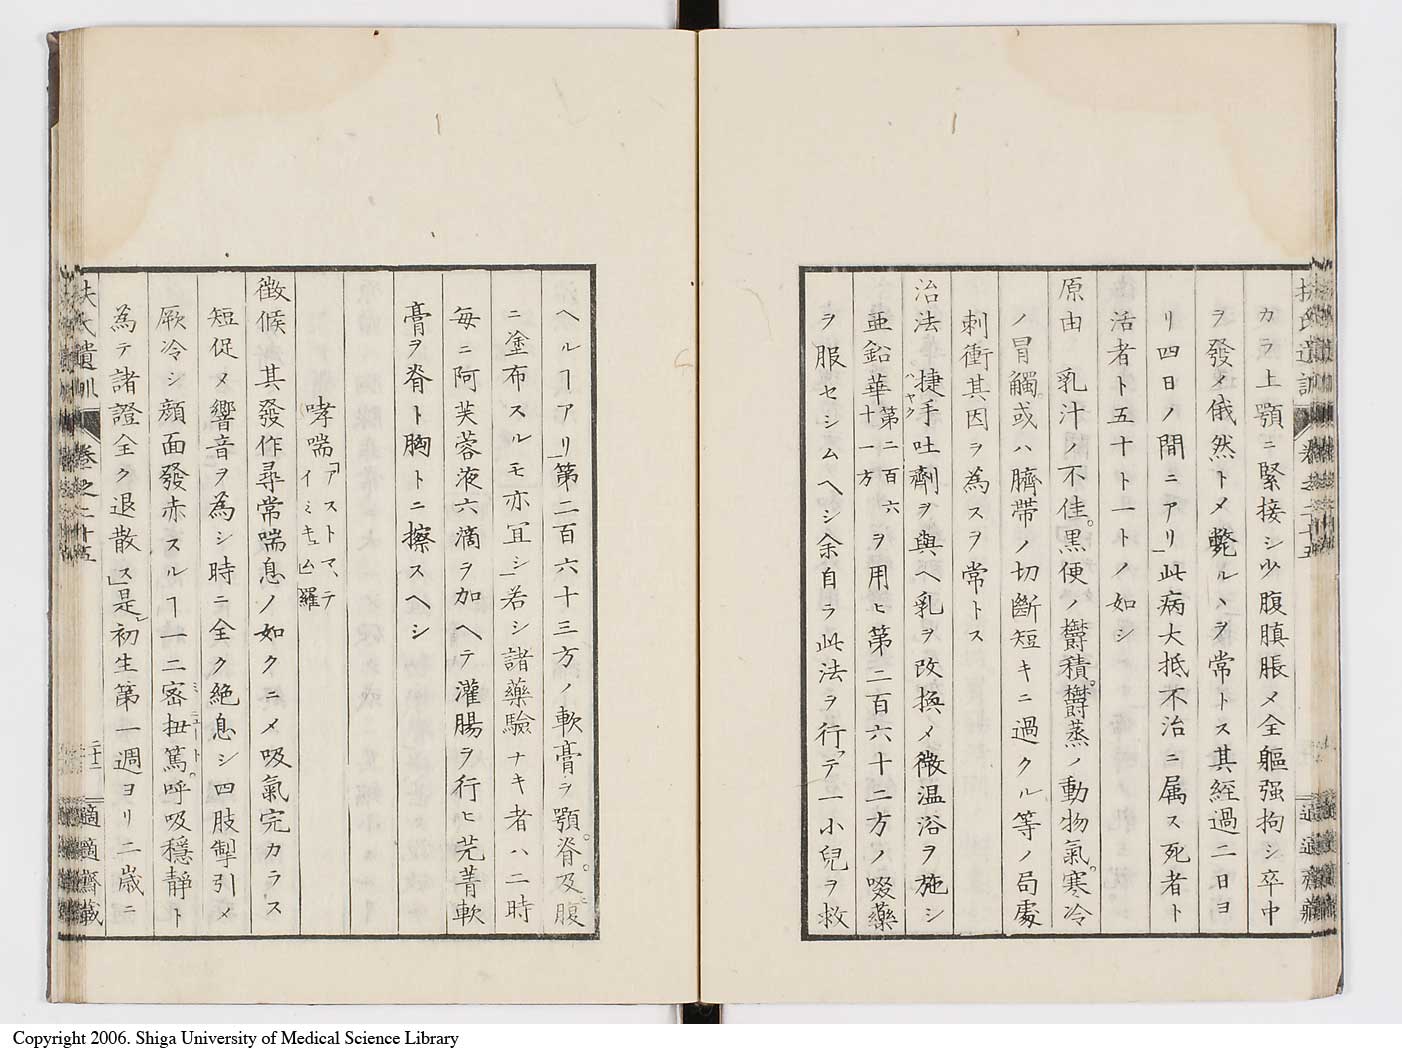 扶氏遺訓 卷之二十五
適適齋藏
カラ上顎ニ緊接シ少腹䐜脹メ全軀强拘シ卒中
ヲ發メ俄然トメ斃ルヽヲ常トス其經過二日ヨ
リ四日ノ間ニアリ」此病大抵不治ニ属ス死者ト
活者ト五十ト一トノ如シ
原由 乳汁ノ不佳。黒便ノ欝積。欝蒸ノ動物氣。寒冷
ノ冒觸。或ハ臍帯ノ切斷短キニ過クル等ノ局處
刺衝其因ヲ為スヲ常トス
治法 捷ハヤク手吐劑ヲ與ヘ乳ヲ改換メ微温浴ヲ施シ
亜鉛華第二百六十一方ヲ用ヒ第二百六十二方ノ啜藥
ヲ服セシムヘシ余自ラ此法ヲ行テ一小兒ヲ救
ヘルヿアリ」第二百六十三方ノ軟膏ヲ顎。脊。及ヒ腹
ニ塗布スルモ亦冝シ」若シ諸藥驗ナキ者ハ二時
每ニ阿芙蓉液六滴ヲ加ヘテ灌腸ヲ行ヒ芫菁軟
膏ヲ脊ト胸トニ擦スヘシ
哮喘「アストマ、テイミキュム」羅
徴候 其發作尋常喘息ノ如クニメ吸氣完カラス
短促メ響音ヲ為シ時ニ全ク絶息シ四肢掣引メ
厥冷シ顔面發赤スルヿ一二密扭ミニュート篤。呼吸穏靜ト
為テ諸證全ク退散ス」是レ初生第一週ヨリ二歳ニ
扶氏遺訓 卷之二十五
二十二
適適齋藏
Copyright 2006. Shiga University of Medical Science Library